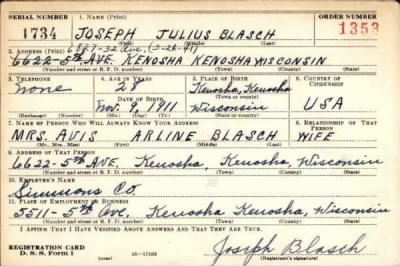 SERIAL NUMBER 1. NAME (Print) ORDER NUMBER
1734 JOSEPH JULIUS BLASCH 1353
(First) (Middle) (Last)
2. ADDRESS (Print) 6827-32 ave. (3-26-41)
6622-5th AVE. KENOSHA KENOSHA WISCONSIN
(Number and street or R. F. D. number) (Town) (County) (State)
3. TELEPHONE 4. AGE IN YEARS 5. PLACE OF BIRTH 6. COUNTRY OF CITIZENSHIP
none 28 Kenosha, Kenosha
DATE OF BIRTH (Town or county)
Nov. 9, 1911 Wisconsin USA
(Exchange) (Number) (Mo.) (Day) (Yr.) (State or country)
7. NAME OF PERSON WHO WILL ALWAYS KNOW YOUR ADDRESS 8. RELATIONSHIP OF THAT PERSON
MRS. AVIS ARLINE BLASCH WIFE
(Mr., Mrs., Miss) (First) (Middle) (Last)
9. ADDRESS OF THAT PERSON
6622-5th AVE. Kenosha, Kenosha, Wisconsin
(Number and street or R. F. D. number) (Town) (County) (State)
10. EMPLOYER'S NAME
Simmons Co.
11. PLACE OF EMPLOYMENT OR BUSINESS
5511-5th Ave. Kenosha Kenosha, Wisconsin
(Number and street or R. F. D. number) (Town) (County) (State)
I AFFIRM THAT I HAVE VERIFIED ABOVE ANSWERS AND THAT THEY ARE TRUE.
REGISTRATION CARD
D. S. S. Form 1 16-17105 Joseph Blasch
(over) (Registrant's signature)